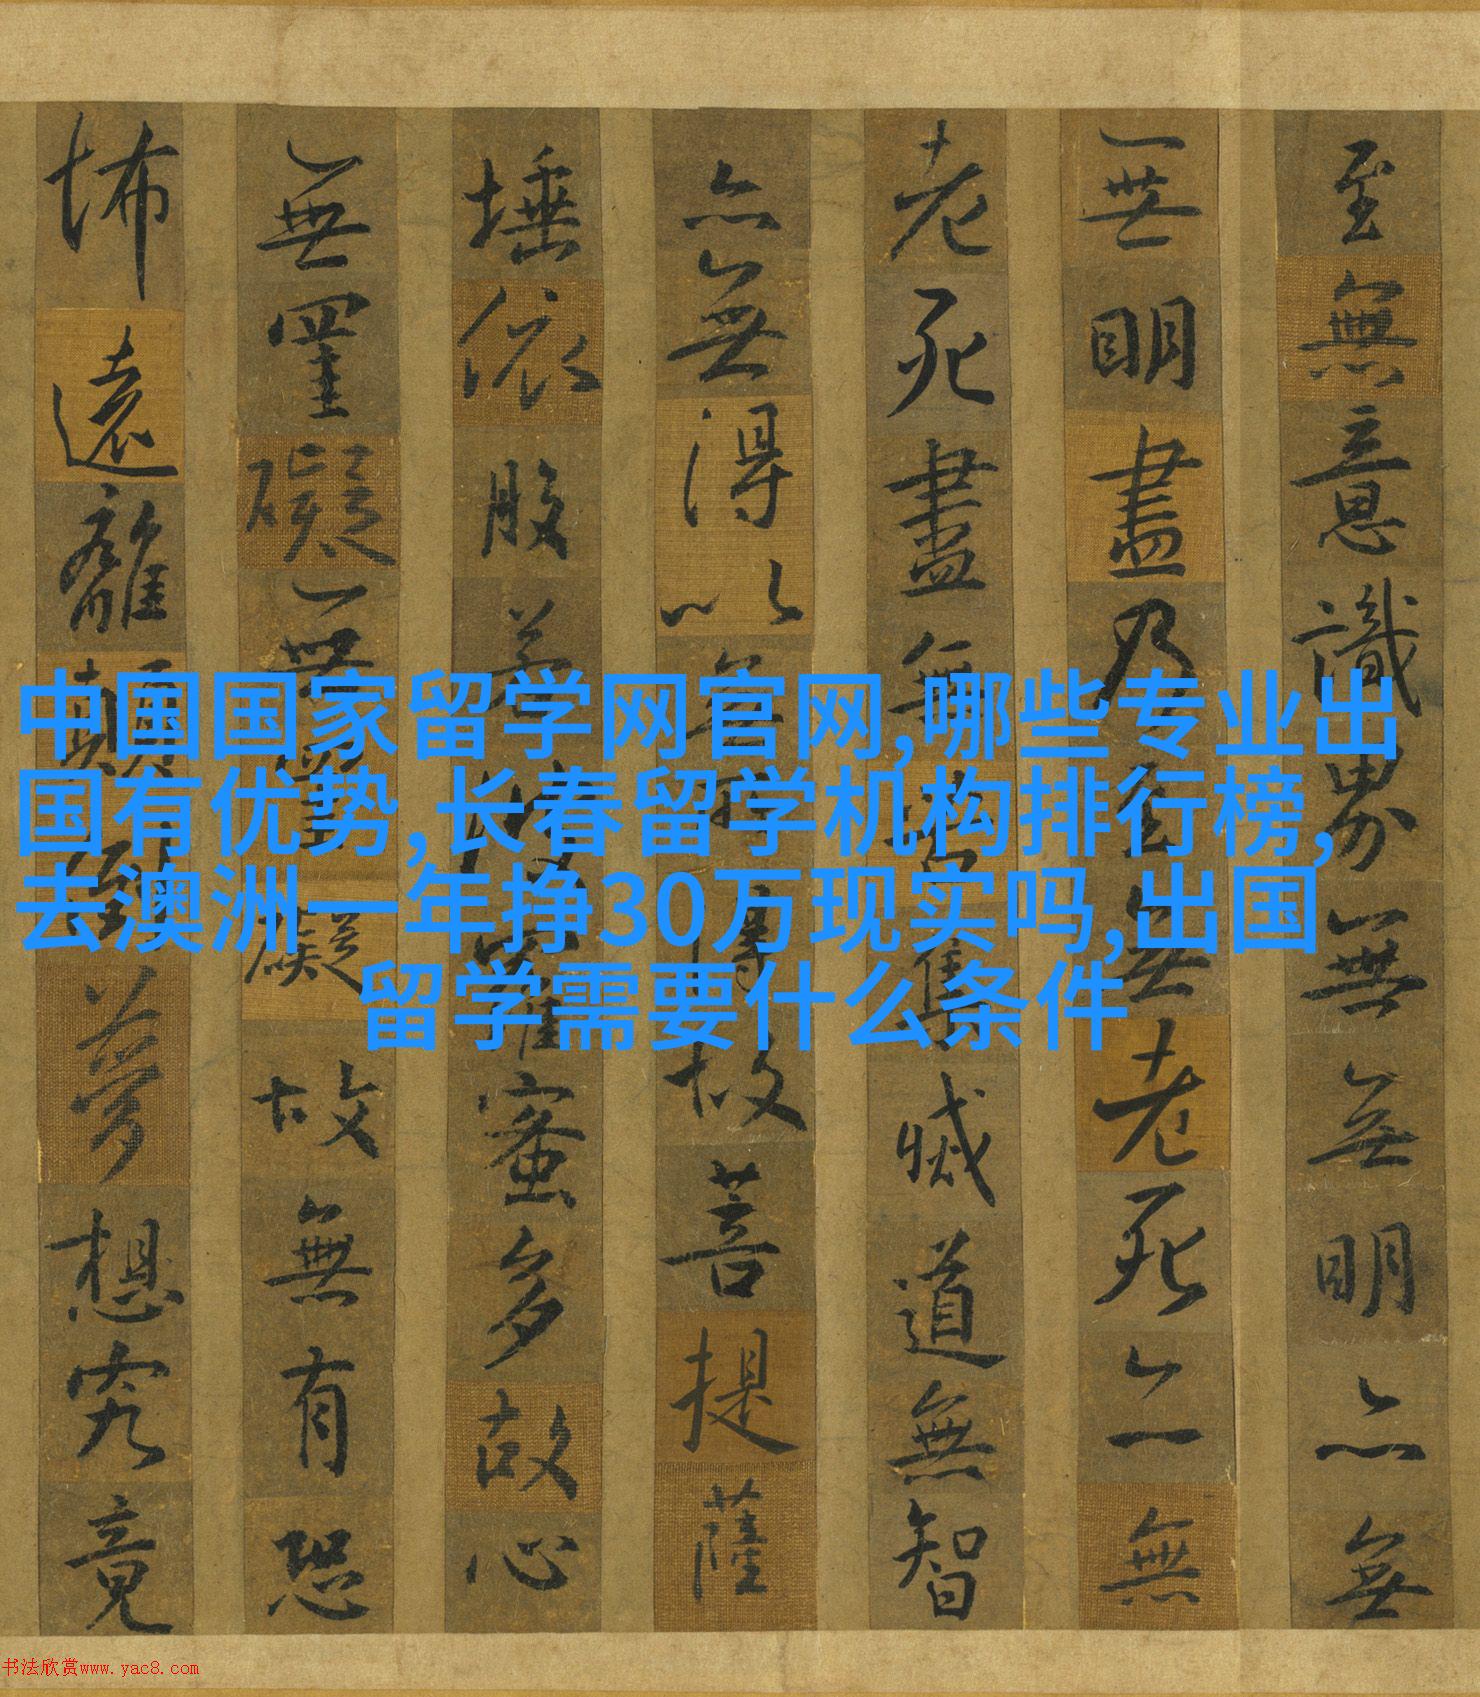 至無意識界無無明亦無
無明盡乃至無老死亦無
老死盡無苦集滅道無智
亦無得以無所得故菩提薩
埵依般若波羅蜜多故心
無罣礙無罣礙故無有恐
怖遠離顛倒夢想究竟
中国国家留学网官网,哪些专业出
国有优势,长春留学机构排行榜,
去澳洲一年挣30万现实吗,出国
留学需要什么条件
书法欣赏www.yac8.com